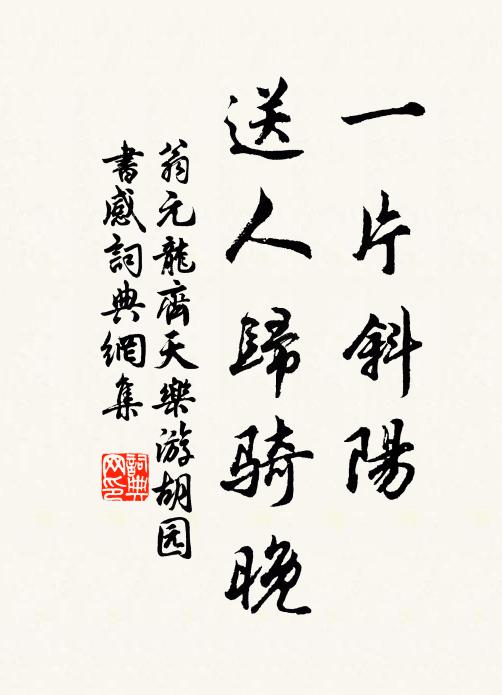 一片斜陽
送人歸騎晚
翁元龍齊天樂游胡园
書感詞典網集
詞典
网印